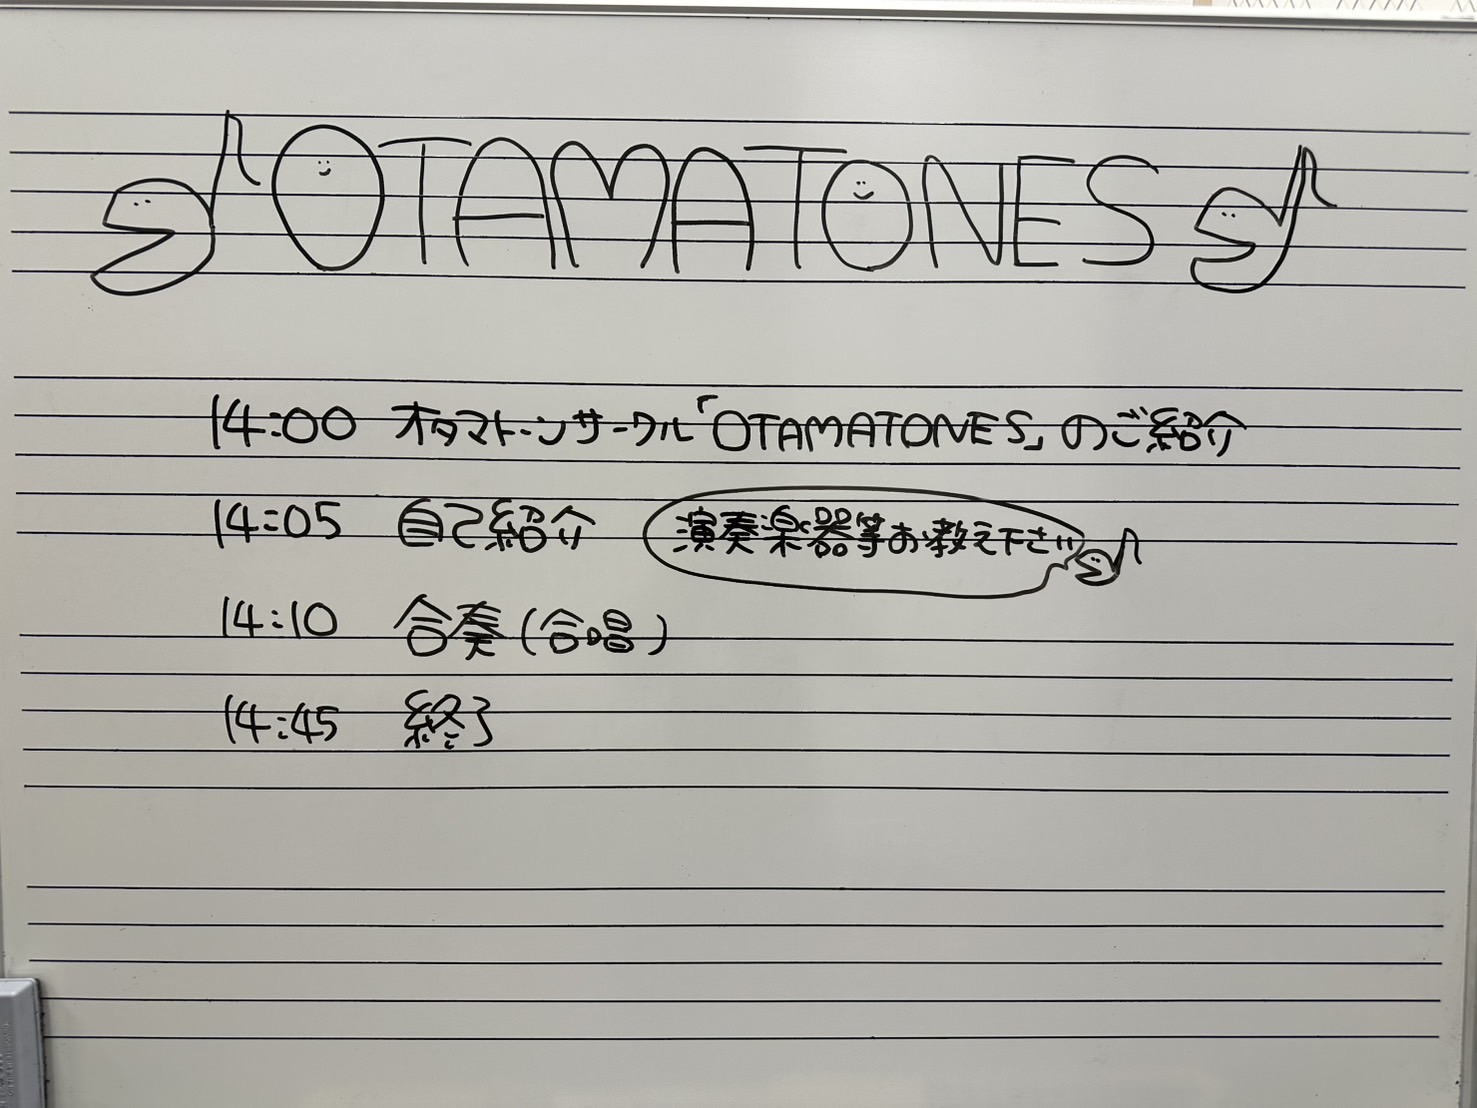 OTAMATONES
14:00 オタマトーンサークル「OTAMATONES」のご紹介
14:05 自己紹介 演奏楽器等お教え下さい
14:10 合奏(合唱)
14:45 終了